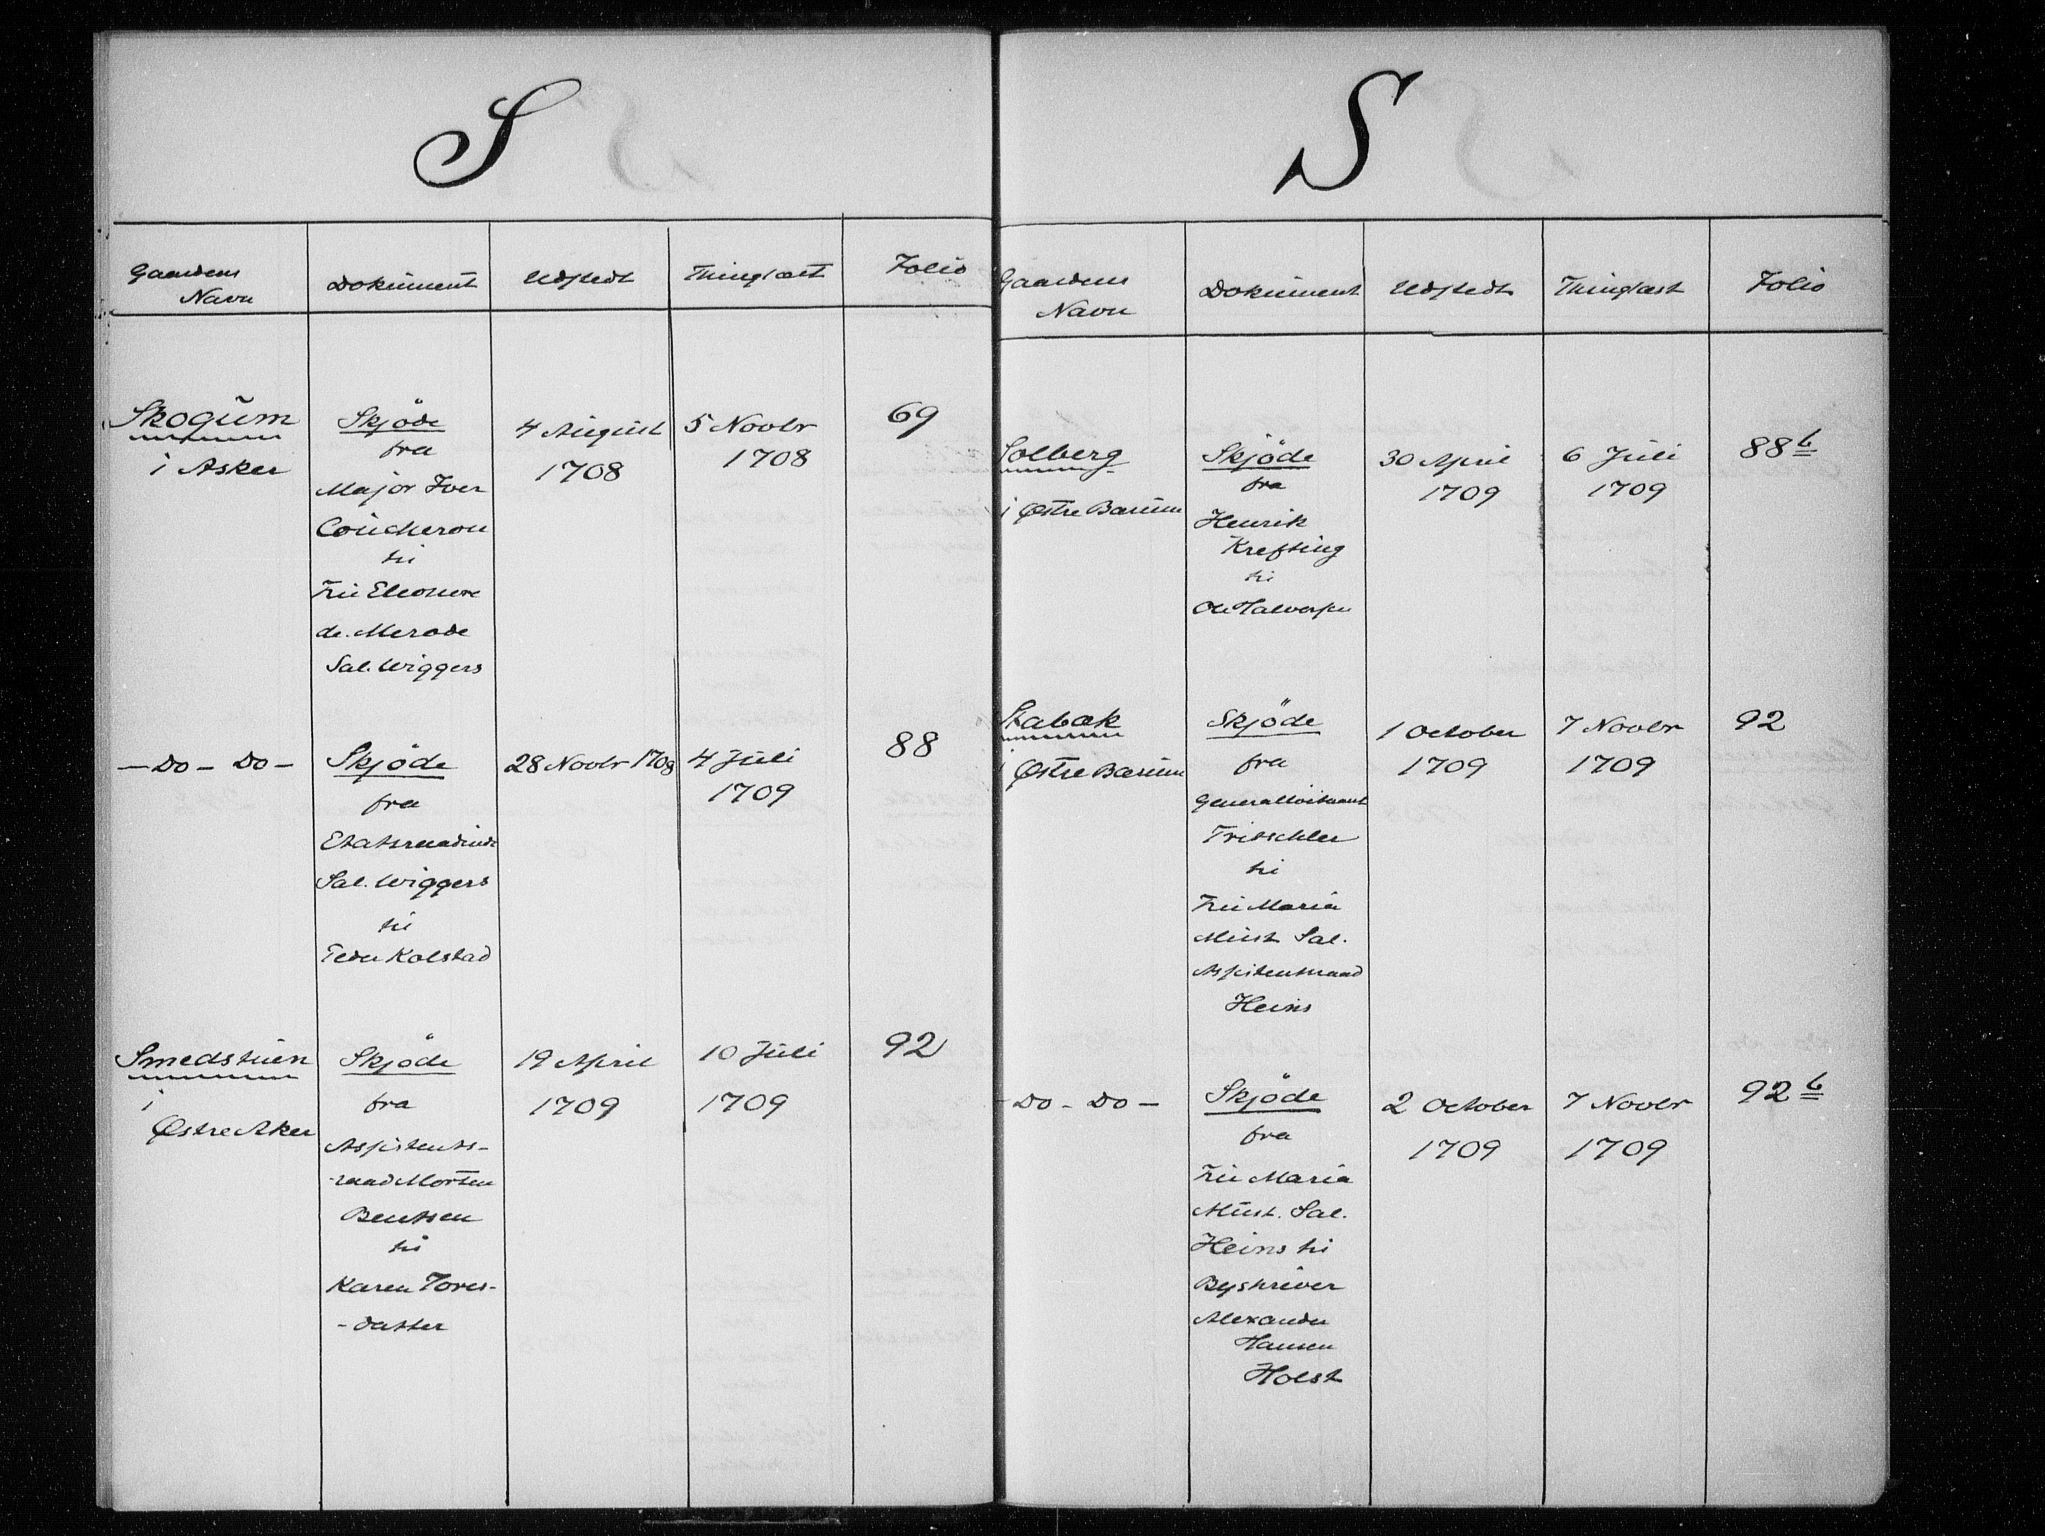 S
Gaardens Navn | Dokument | Udstedt | Thinglæst | Folio
Skogum | Skjöde | 4 August | 5 Novbr | 69
i Asker | fra | 1708 | 1708
Major Iver
Coucheron
til
Fru Eleonore
de. Merode
Sal. Wiggers
— Do — Do — | Skjöde | 28 Novbr 1708 | 4 Juli | 88
fra | 1709
Etatsraadinde
Sal. Wiggers
til
Peder Kolstad
Smedstuen | Skjöde | 19 April | 10 Juli | 92
i | fra | 1709 | 1709
Østre Aker
Assistents-
-raad Morten
Bentsen
til
Karen Tores-
-datter
S
Gaardens Navn | Dokument | Udstedt | Thinglæst | Folio
Solberg | Skjöde | 30 April | 6 Juli | 88 b
i Østre Bærum | fra | 1709 | 1709
Henrik
Krefting
til
Ole Halvorsen
Stabæk | Skjöde | 1 October | 7 Novbr | 92
i Østre Bærum | fra | 1709 | 1709
Generalløitnant
Tritschler
til
Fru Maria
Must Sal.
Assistentsraad
Heins
— Do — Do — | Skjöde | 2 October | 7 Novbr | 92 b
fra | 1709 | 1709
Fru Maria
Must. Sal.
Heins til
Byskriver
Alexander
Hansen
Holst